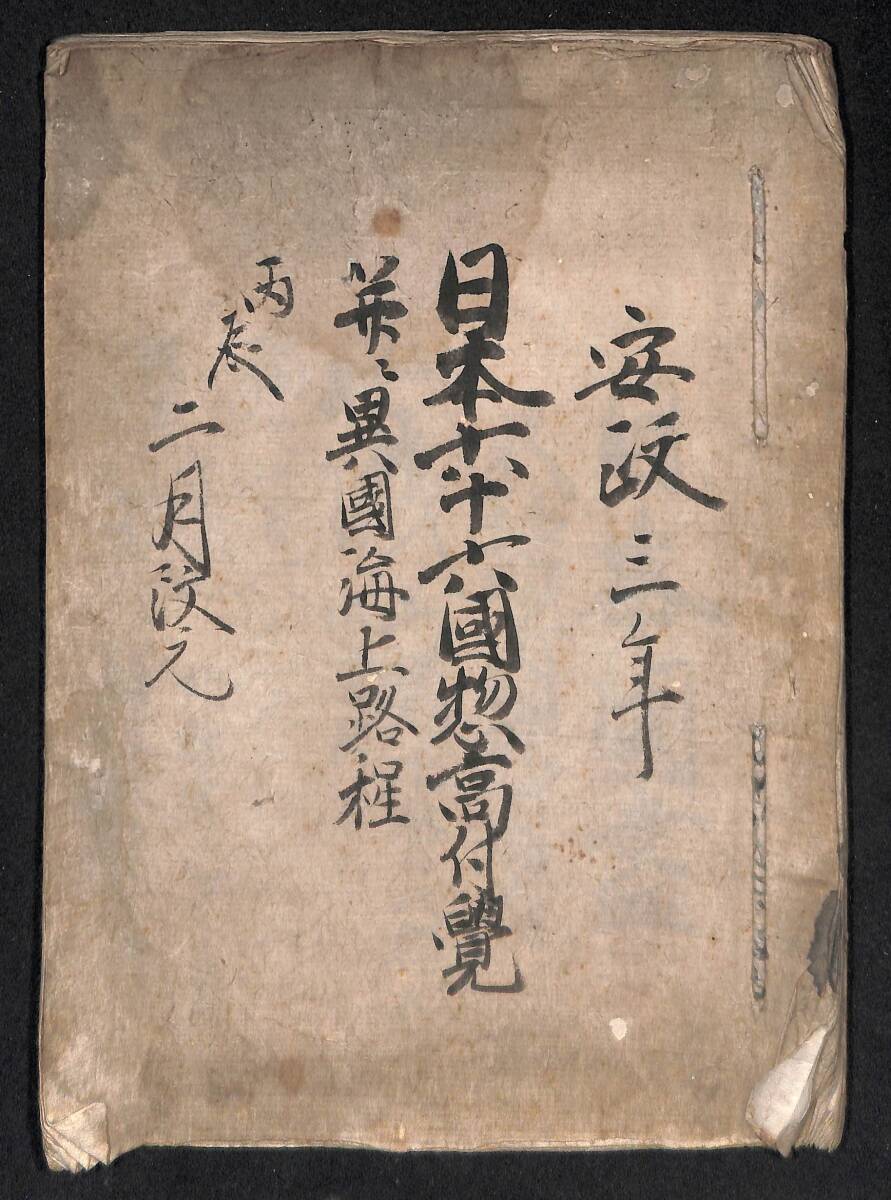 安政三年
日本六十六國惣高付覺
并ニ異國海上路程
丙辰二月改